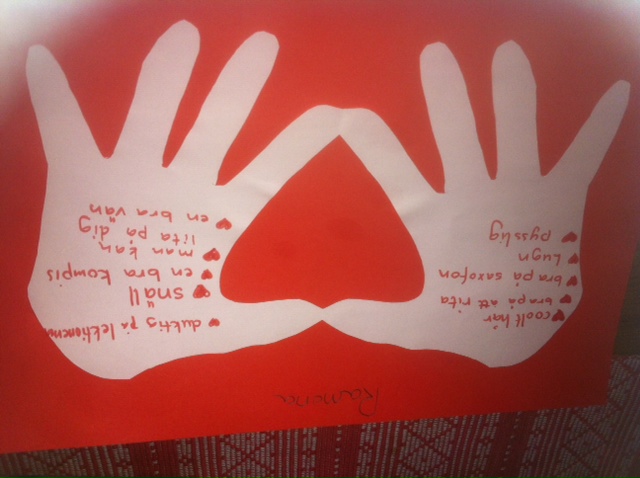 Ramina
coolt hår
bra på att rita
bra på saxofon
Lugn
pysslig
duktig på lektionerna
snäll
en bra kompis
man kan
lita på dig
en bra vän